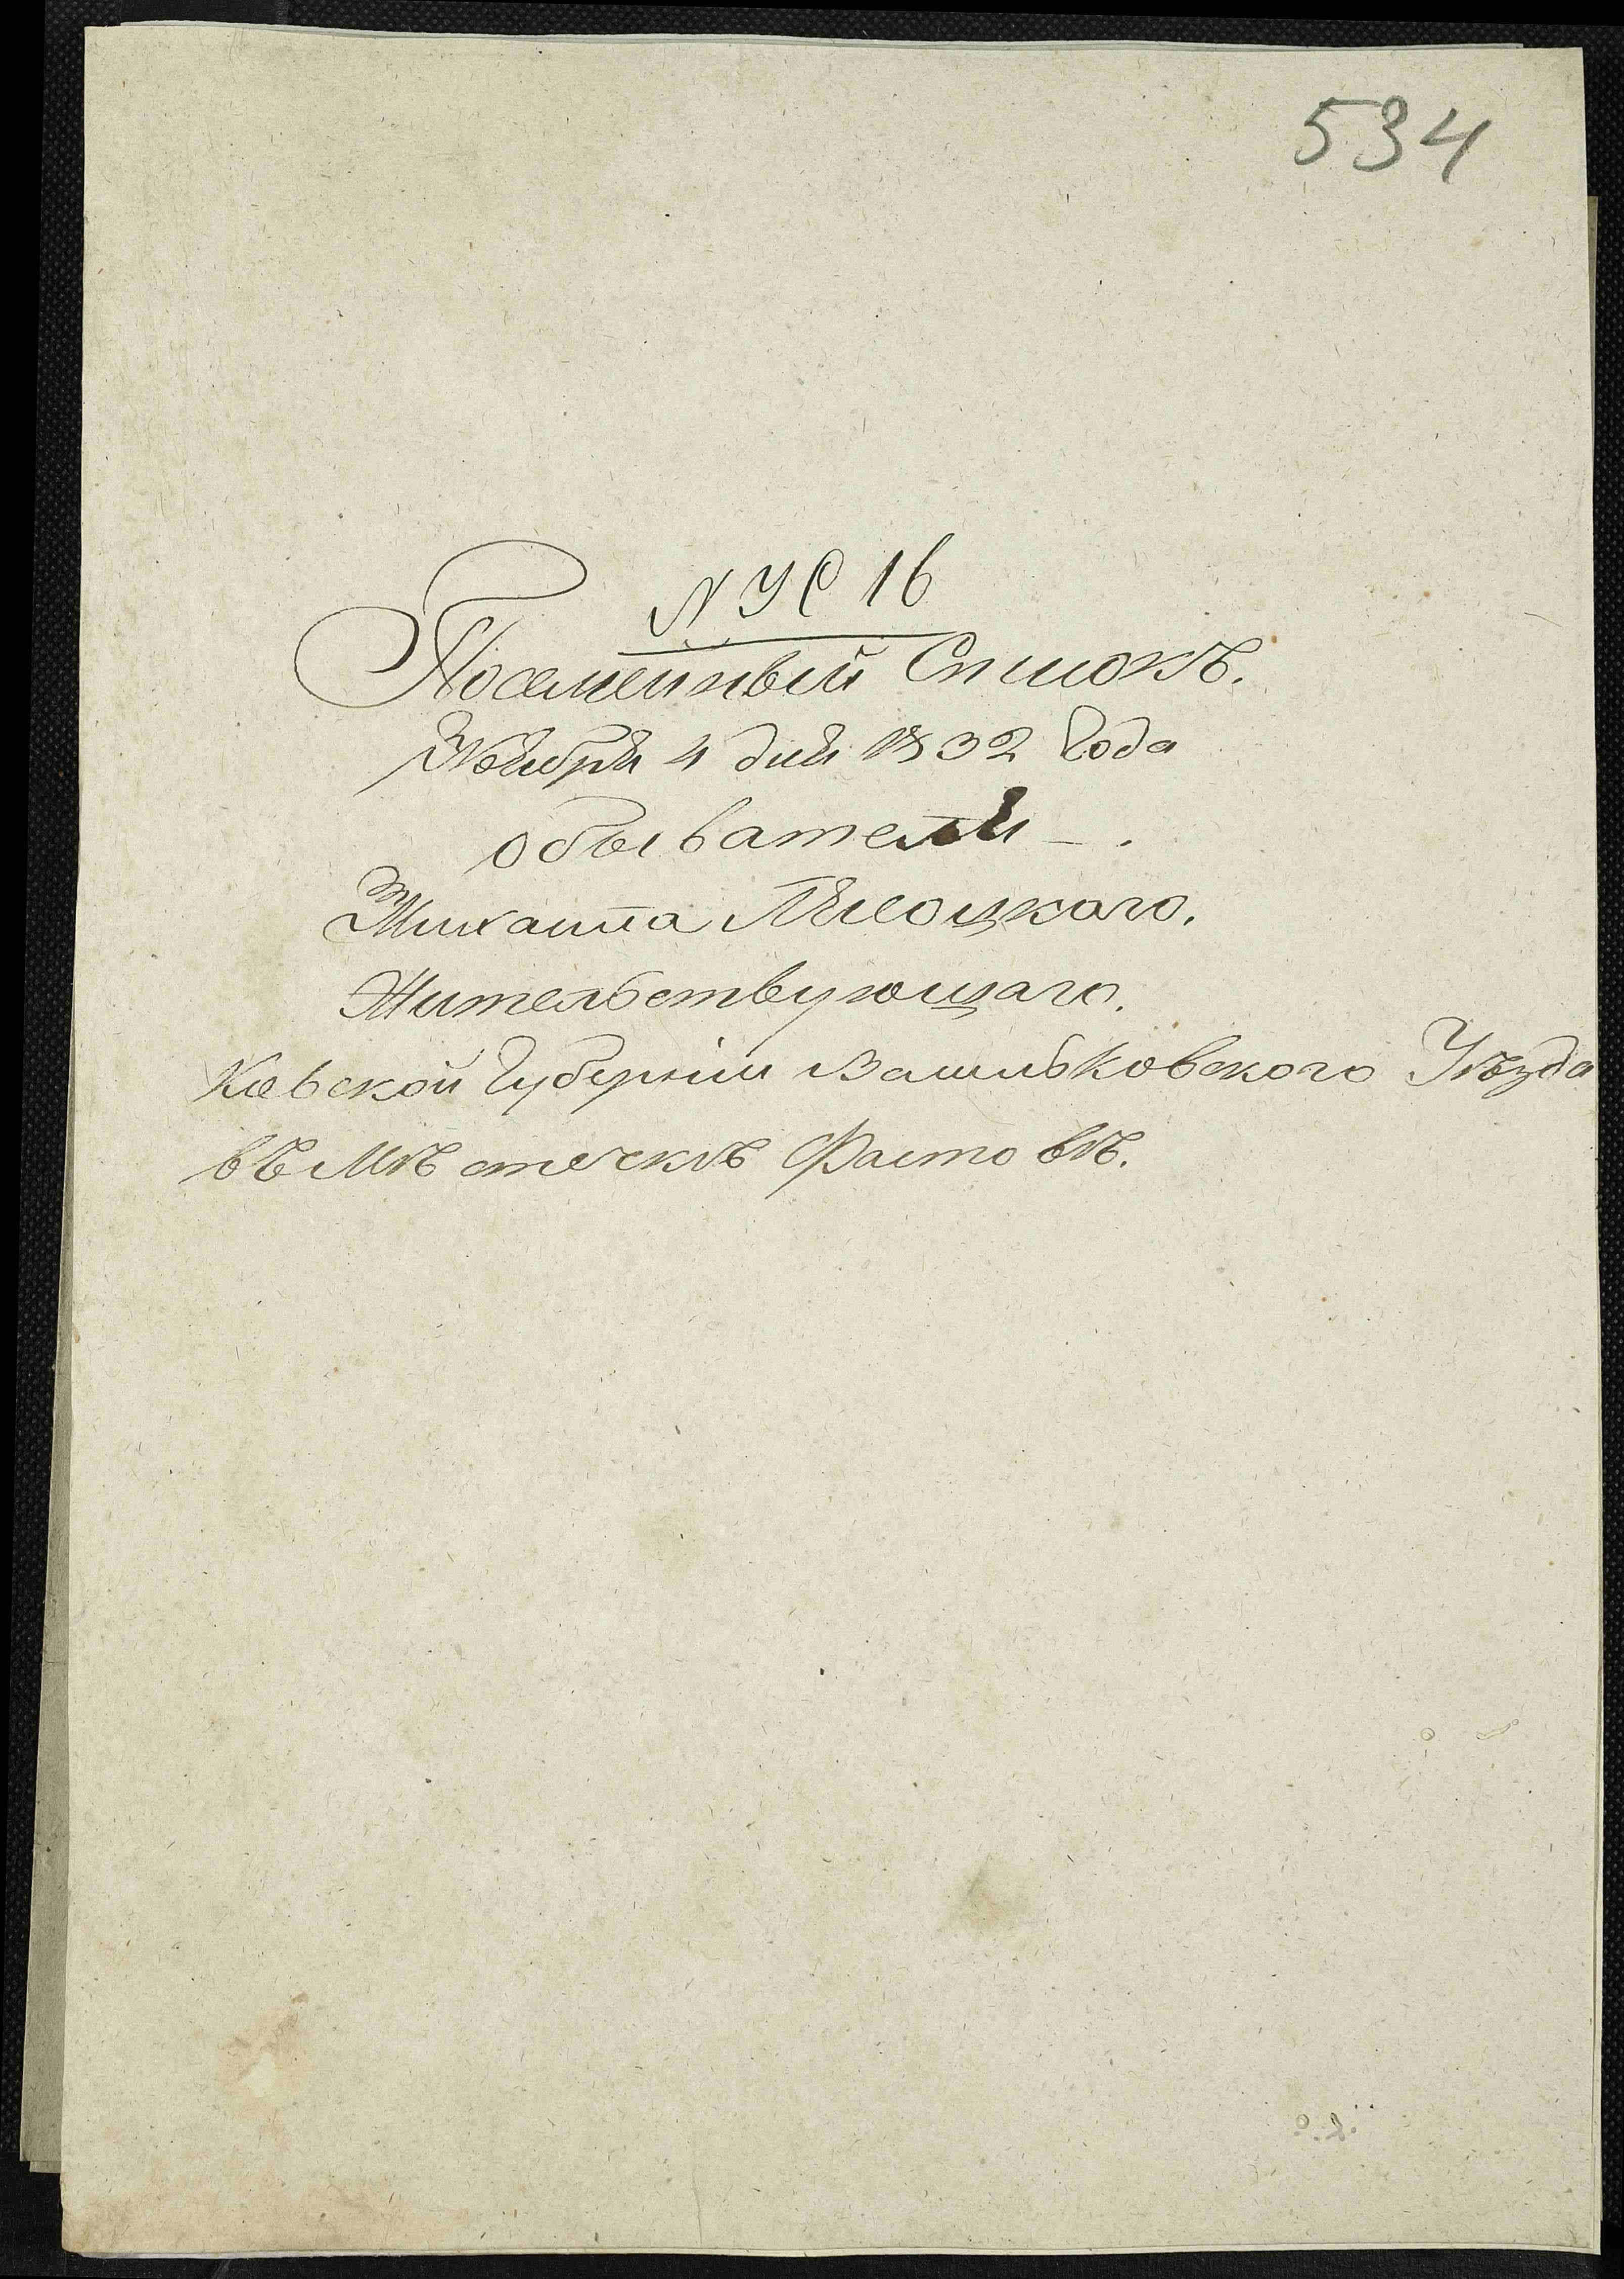 534
N УС 16
Посемейный Списокъ.
Ноября 4 дня 1832 Года
обывателя — .
Михаила Лясоцкаго.
Жительствующаго.
Киевской Губерніи Васильковского Уѣзда
въ мѣстечкѣ Фастовѣ.